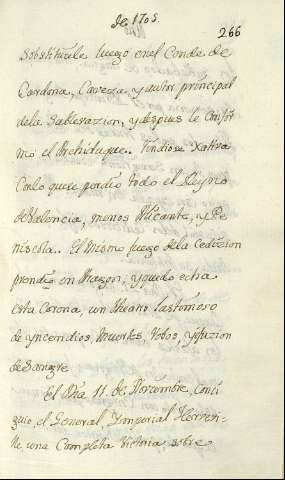 de 1705.
266
Sobstituirle luego en el Conde de
Cardona, Caveza y autor principal
dela Sublevazion, y despues le Confir
mo el Archiduque. Rindiose Xativa
Conlo que se perdio todo el Reyno
de Valencia, menos Alicante, y Pe
niscola. El mismo fuego dela Cedizion
prendio en Aragon, y quedo echa
esta Corona, un theatro lastomoso
de yncendios, Muertes, Robos, y efuzion
de Sangre
El Dia 11 de Noviembre, Consi
guio, el General Ymperial Hervevi
lle una Completa Victoria sobre